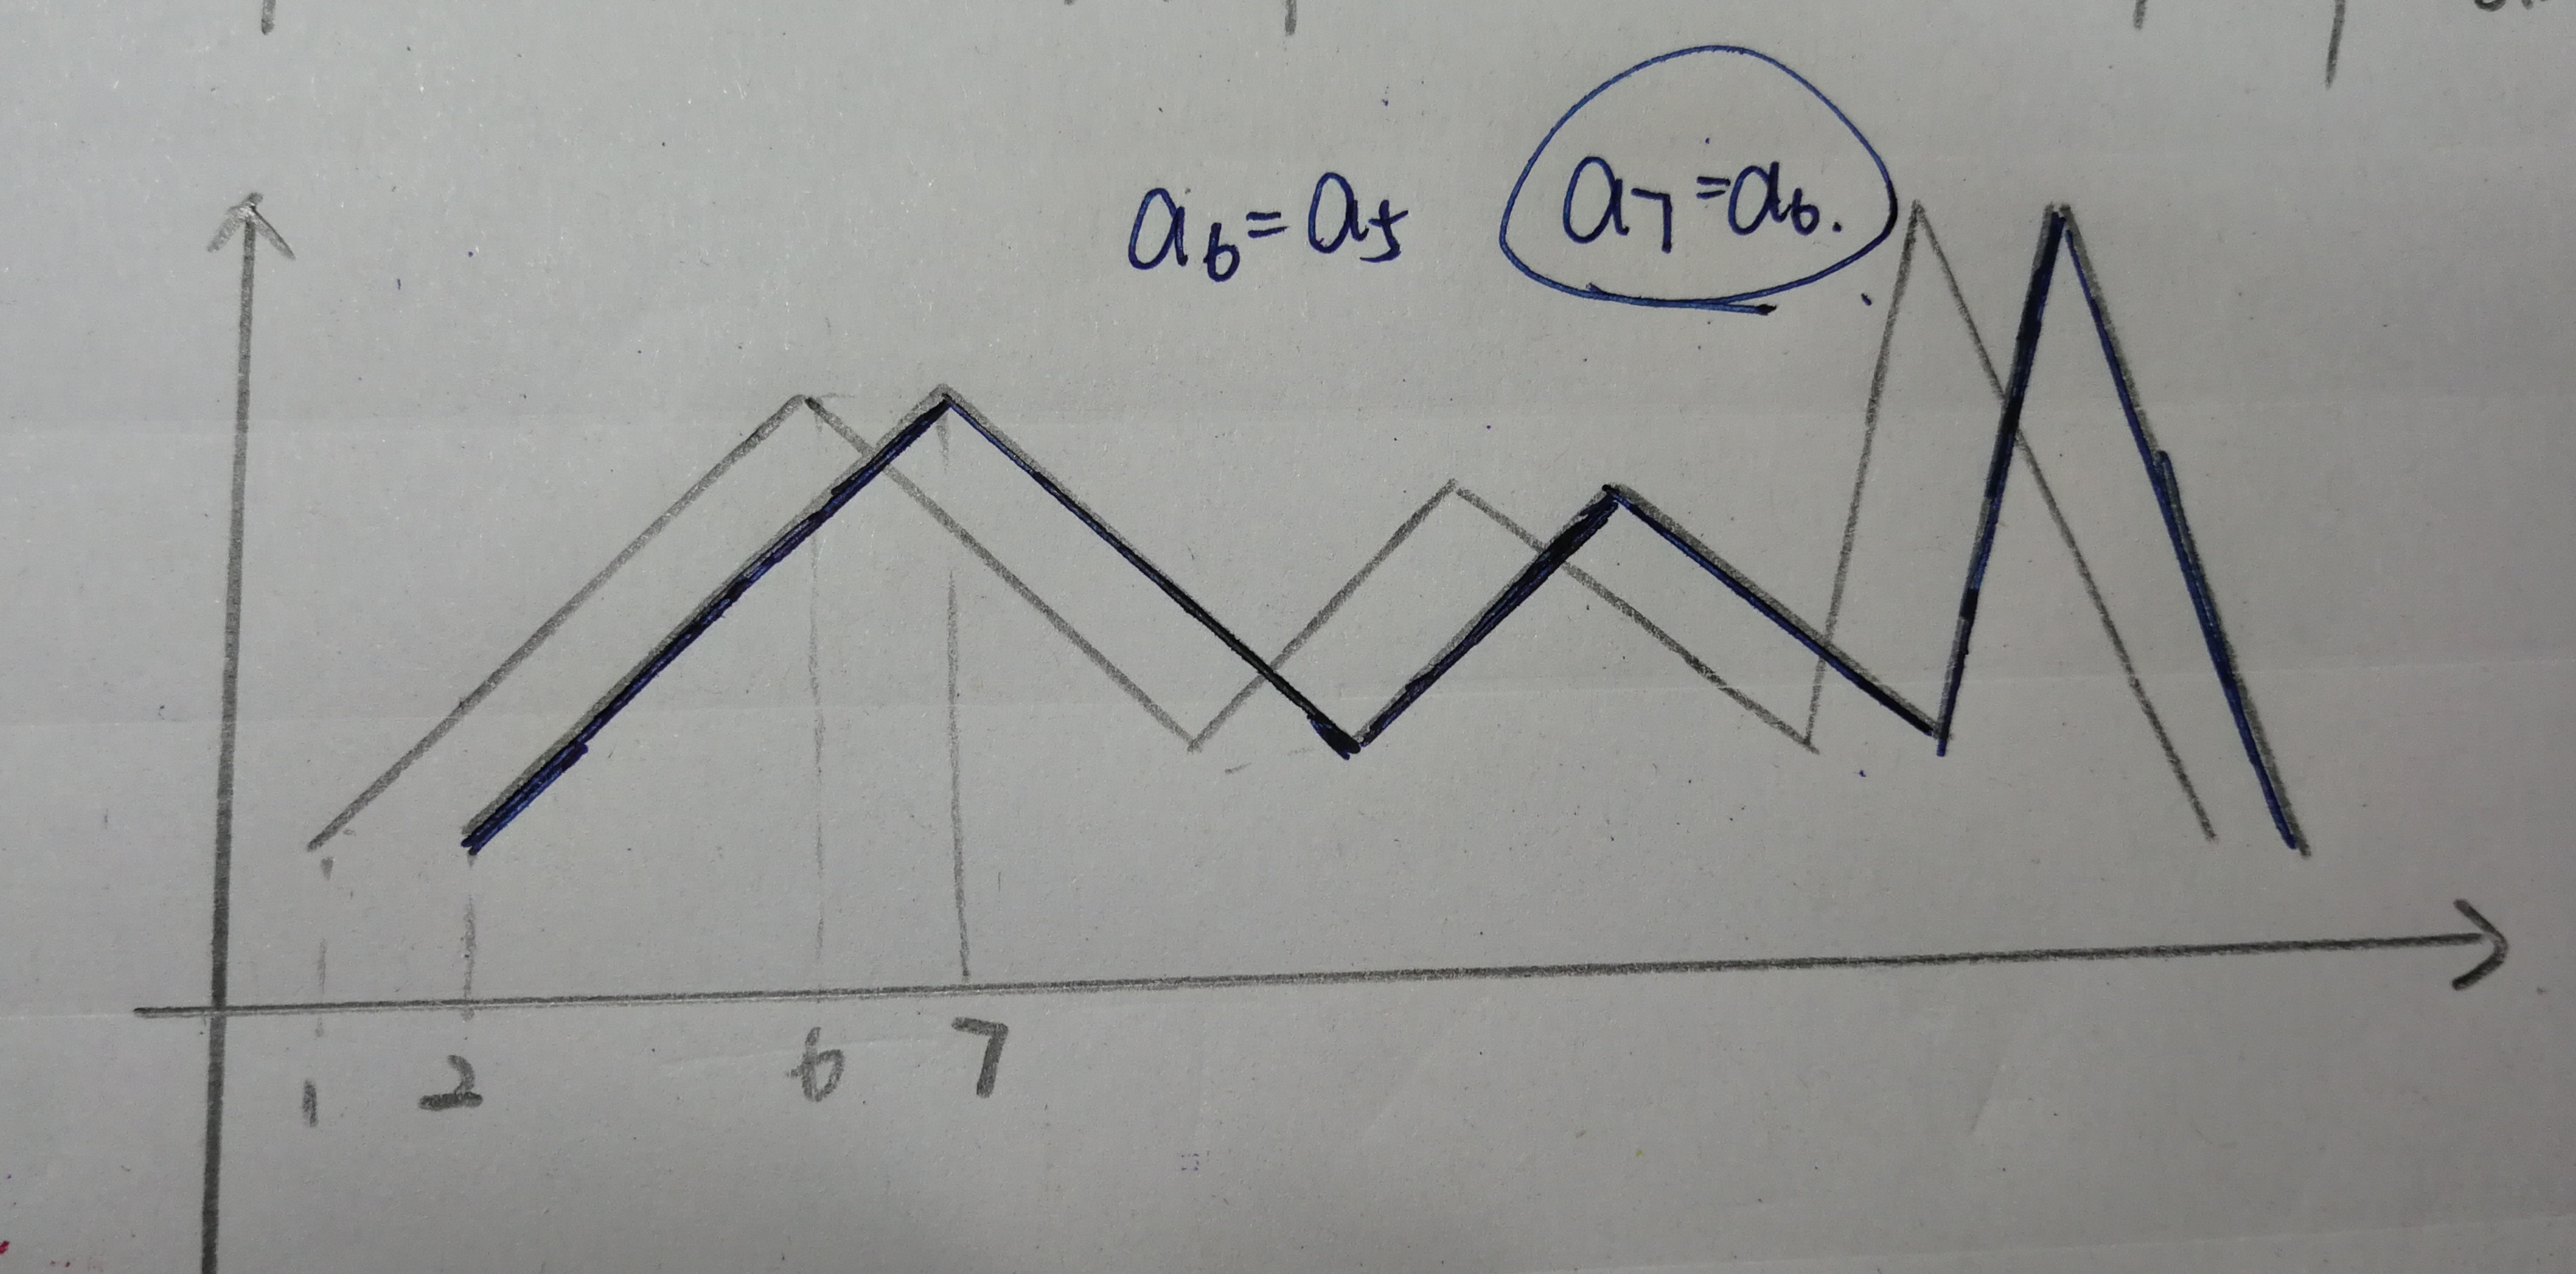 a₆=a₅ a₇=a₆.
1 2 6 7